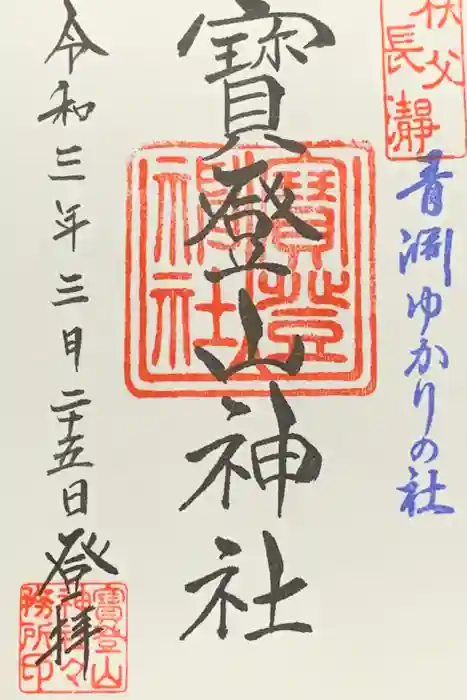 秩父
長瀞
青淵ゆかりの社
寳登山神社
寳登
神社
令和三年三月二十五日登拝
寳登山
神社々
務所印